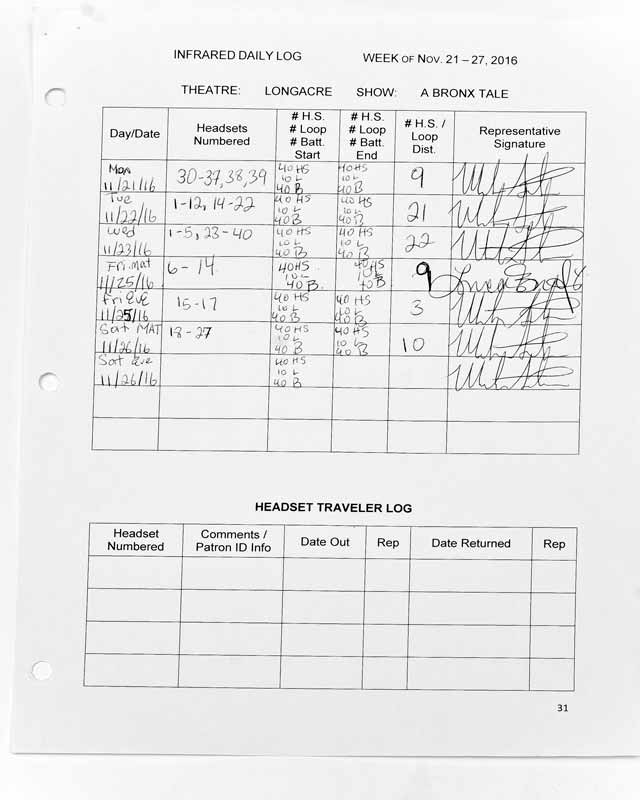 INFRARED DAILY LOG WEEK OF NOV. 21 – 27, 2016
THEATRE: LONGACRE SHOW: A BRONX TALE
Day/Date Headsets Numbered # H.S. # Loop # Batt. Start # H.S. # Loop # Batt. End # H.S. / Loop Dist. Representative Signature
Mon 11/21/16 30-37,38,39 40 HS 10 L 40 B 40 HS 10 L 40 B 9
Tue 11/22/16 1-12, 14-22 40 HS 10 L 40 B 40 HS 10 L 40 B 21
Wed 11/23/16 1-5, 23-40 40 HS 10 L 40 B 40 HS 10 L 40 B 22
Fri.mat 11/25/16 6-14 40HS 10 L 40 B 40HS 10 L 40 B 9
Fri EVE 11/25/16 15-17 40 HS 10 L 40 B 40 HS 10 L 40 B 3
Sat MAT 11/26/16 18-27 40 HS 10 L 40 B 40 HS 10 L 40 B 10
Sat Eve 11/26/16 40 HS 10 L 40 B
HEADSET TRAVELER LOG
Headset Numbered Comments / Patron ID Info Date Out Rep Date Returned Rep
31